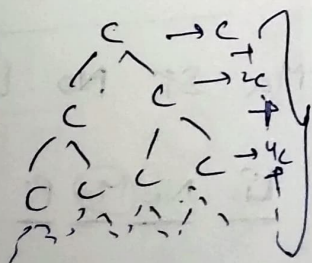 C → C
+
C C → 2C
+
C C C C → 4C
+